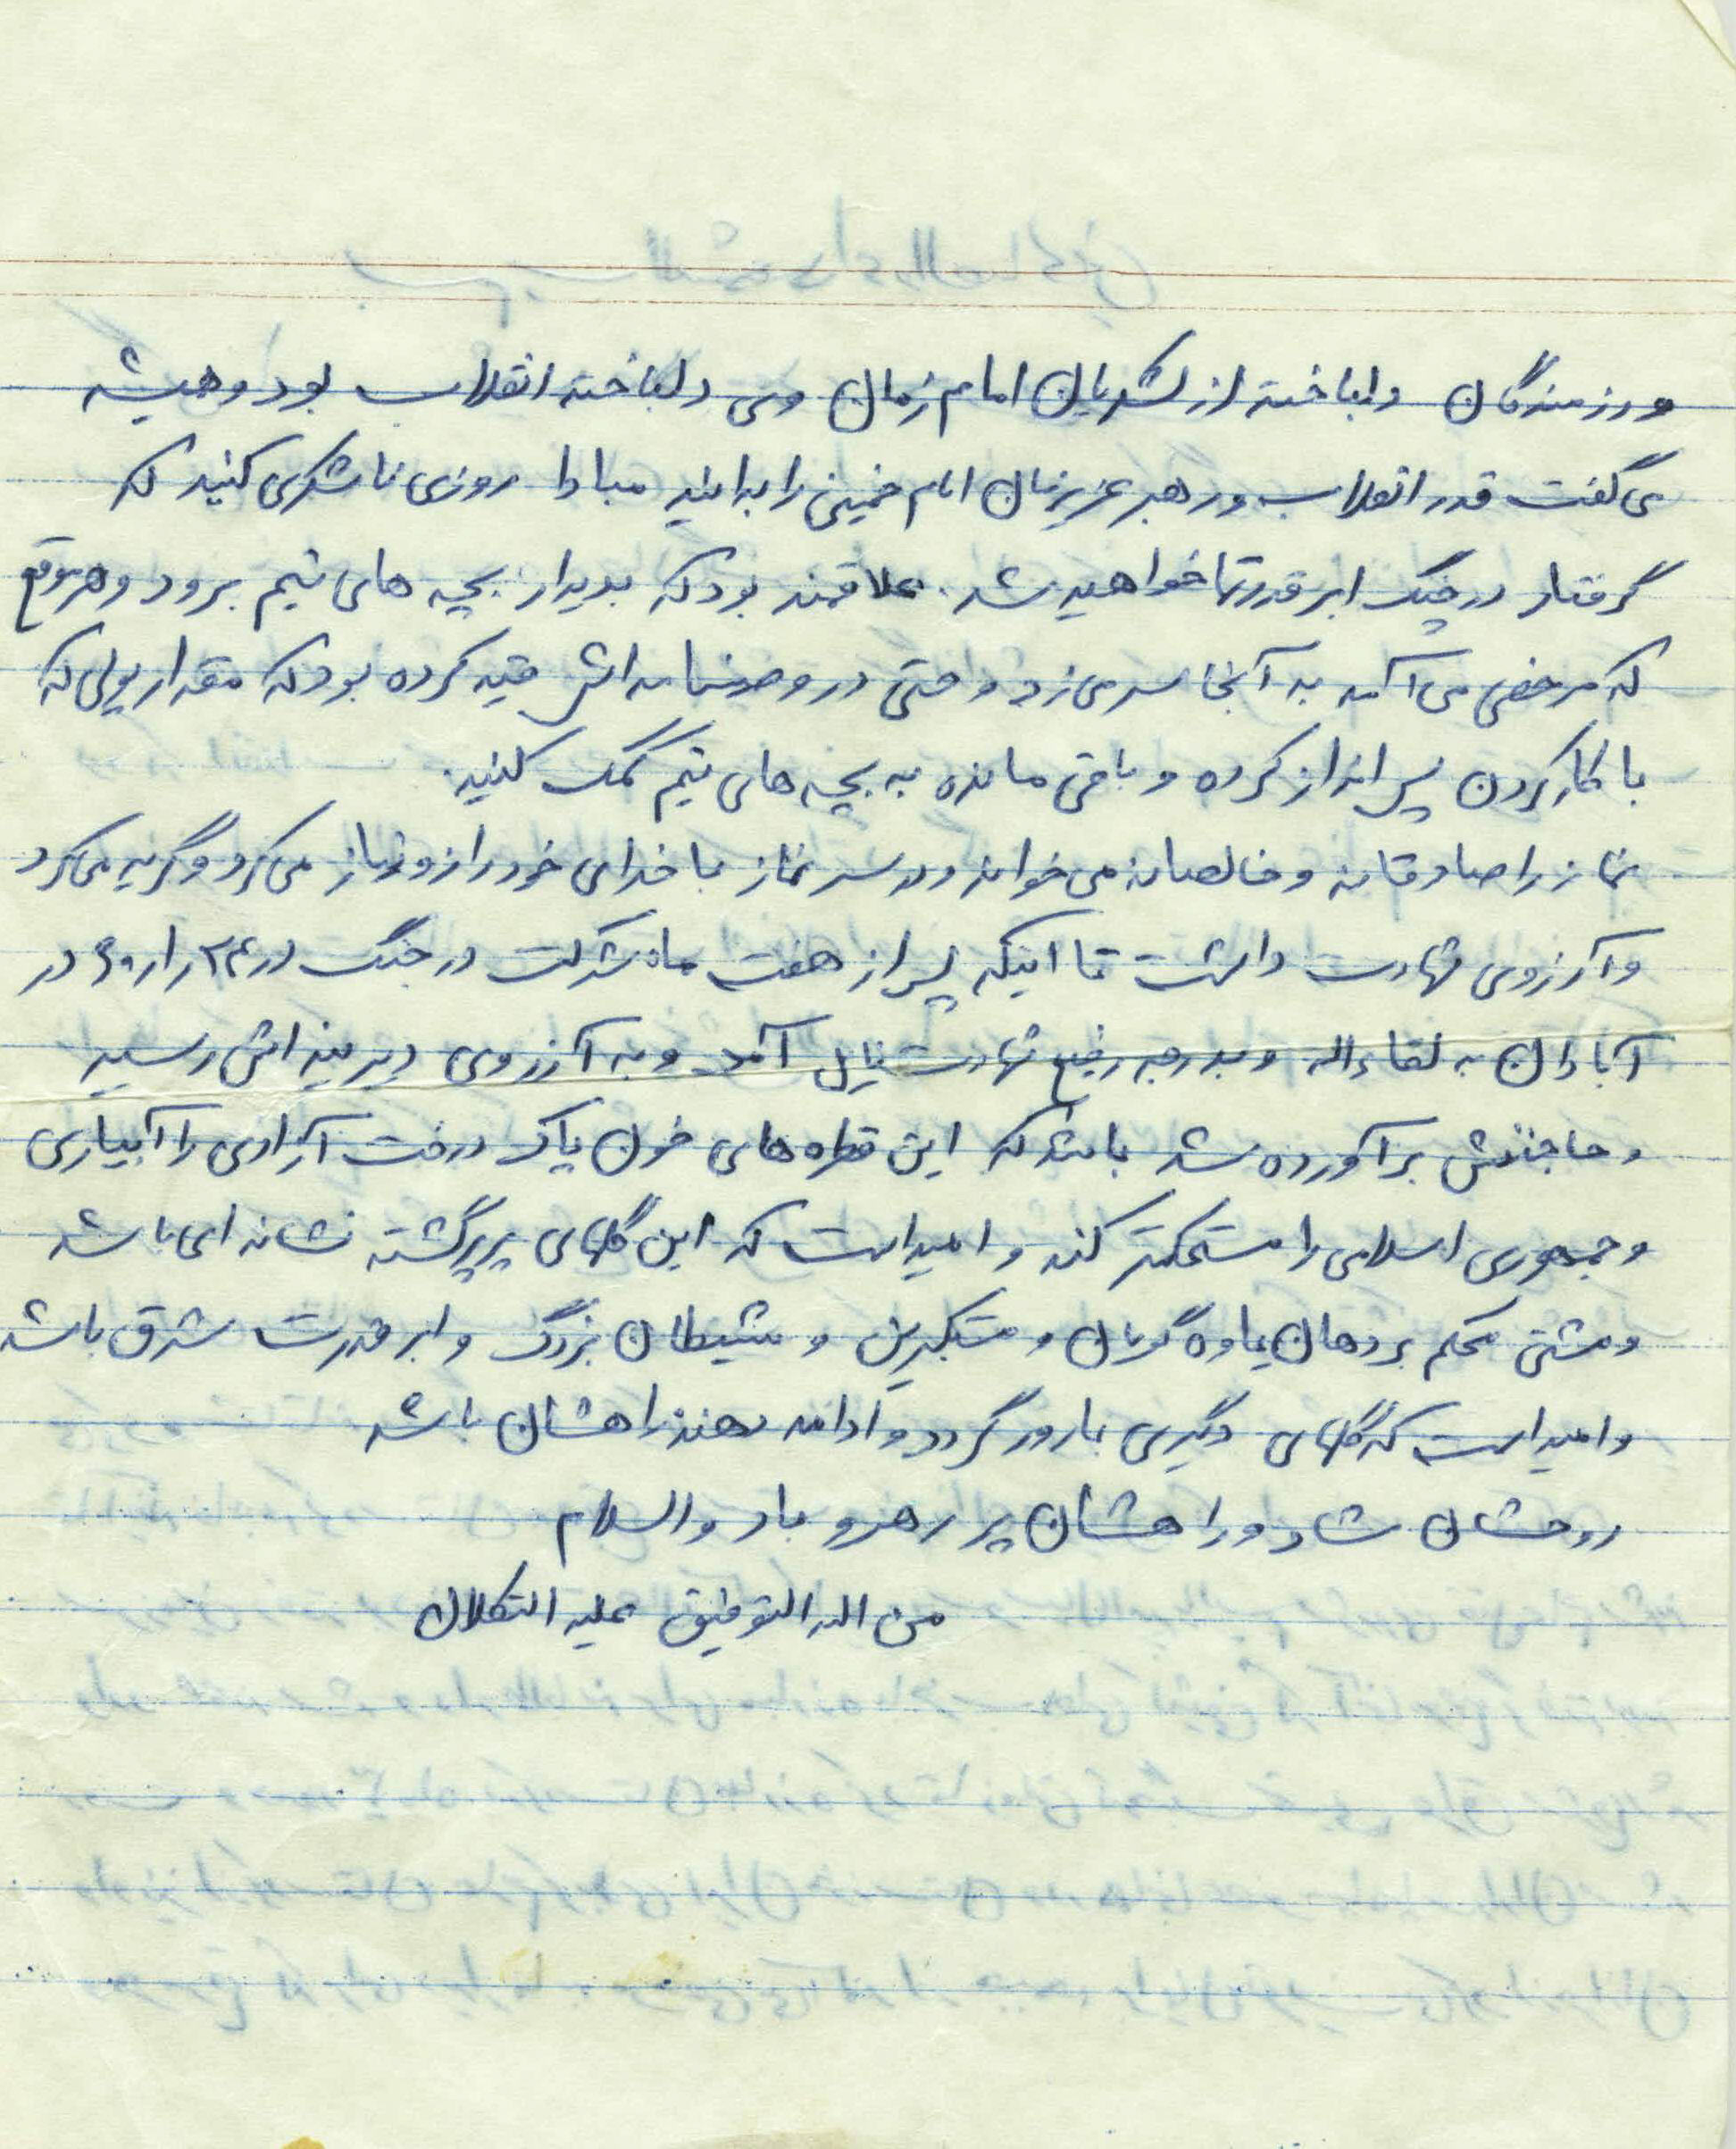 و رزمندگان دلباخته از لشکریان امام زمان وی دلباخته انقلاب بود و همیشه
می گفت قدر انقلاب و رهبر عزیزمان امام خمینی را بدانید مبادا روزی ناشکری کنید که
گرفتار در چنگ ابر قدرتها خواهید شد. علاقمند بود که بدیدار بچه های یتیم برود و هر موقع
که مرخصی می آمد به آنجا سر می زد و حتی در وصیتنامه اش قید کرده بود که مقدار پولی که
با کار کردن پس انداز کرده و باقی مانده به بچه های یتیم کمک کنید.
نماز را صادقانه و خالصانه می خواند و در سر نماز با خدای خود راز و نیاز می کرد و گریه می کرد
و آرزوی شهادت داشت تا اینکه پس از هفت ماه شرکت در جنگ در در
آبادان به لقاءاله و بدرجه رفیع شهادت نایل آمد و به آرزوی دیرینه اش رسید
و حاجتش برآورده شد باشد که این قطره های خون پاک درخت آزادی را آبیاری
و جمهوری اسلامی را مستحکمتر کند و امید است که این گلهای پرپر گشته نشانه ای باشد
و مشتی محکم بر دهان یاوه گویان و مستکبرین و شیطان بزرگ و ابر قدرت شرق باشد
و امید است که گلهای دیگری بارور گردد و ادامه دهنده راهشان باشد
روحشان شاد و راهشان پر رهرو باد والسلام
من اله التوفیق علیه التکلان